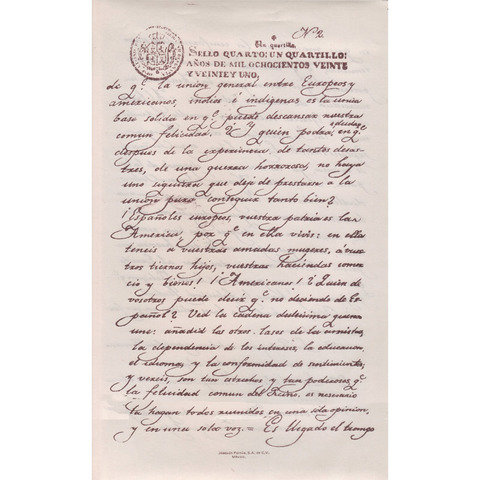 Nº 2.
Un quartillo.
SELLO QUARTO: UN QUARTILLO:
AÑOS DE MIL OCHOCIENTOS VEINTE
Y VEINTE Y UNO,
de qᵉ la union general entre Europeos y
americanos, indios é indigenas es la unica
base solida en qᵉ puede descansar nuestra
comun felicidad. Y quien podra, en qᵉ
despues de la experiencia, de tantos desas-
tres, de una guerra horrorosa, no haya
uno siquiera que deje de prestarse a la
union para conseguir tanto bien?
¡Españoles europeos, vuestra patria es la
America, por qᵉ en ella vivis: en ella
teneis a vuestras amadas mugeres, á vues-
tros tiernos hijos, vuestras haciendas comer
cio y bienes! ¡Americanos! ¿Quien de
vosotros puede decir qᵉ no deciende de Es-
pañol? Ved la cadena dulcisima que nos
une: añadid los otros lasos de la amistad,
la dependencia de los intereses, la educacion,
el idioma, y la conformidad de sentimientos,
y vereis, son tan estrechos y tan poderosos, qᵉ
la felicidad comun del Reino, es necesario
la hagan todos reunidos en una sola opinion,
y en una sola voz. = Es llegado el tiempo